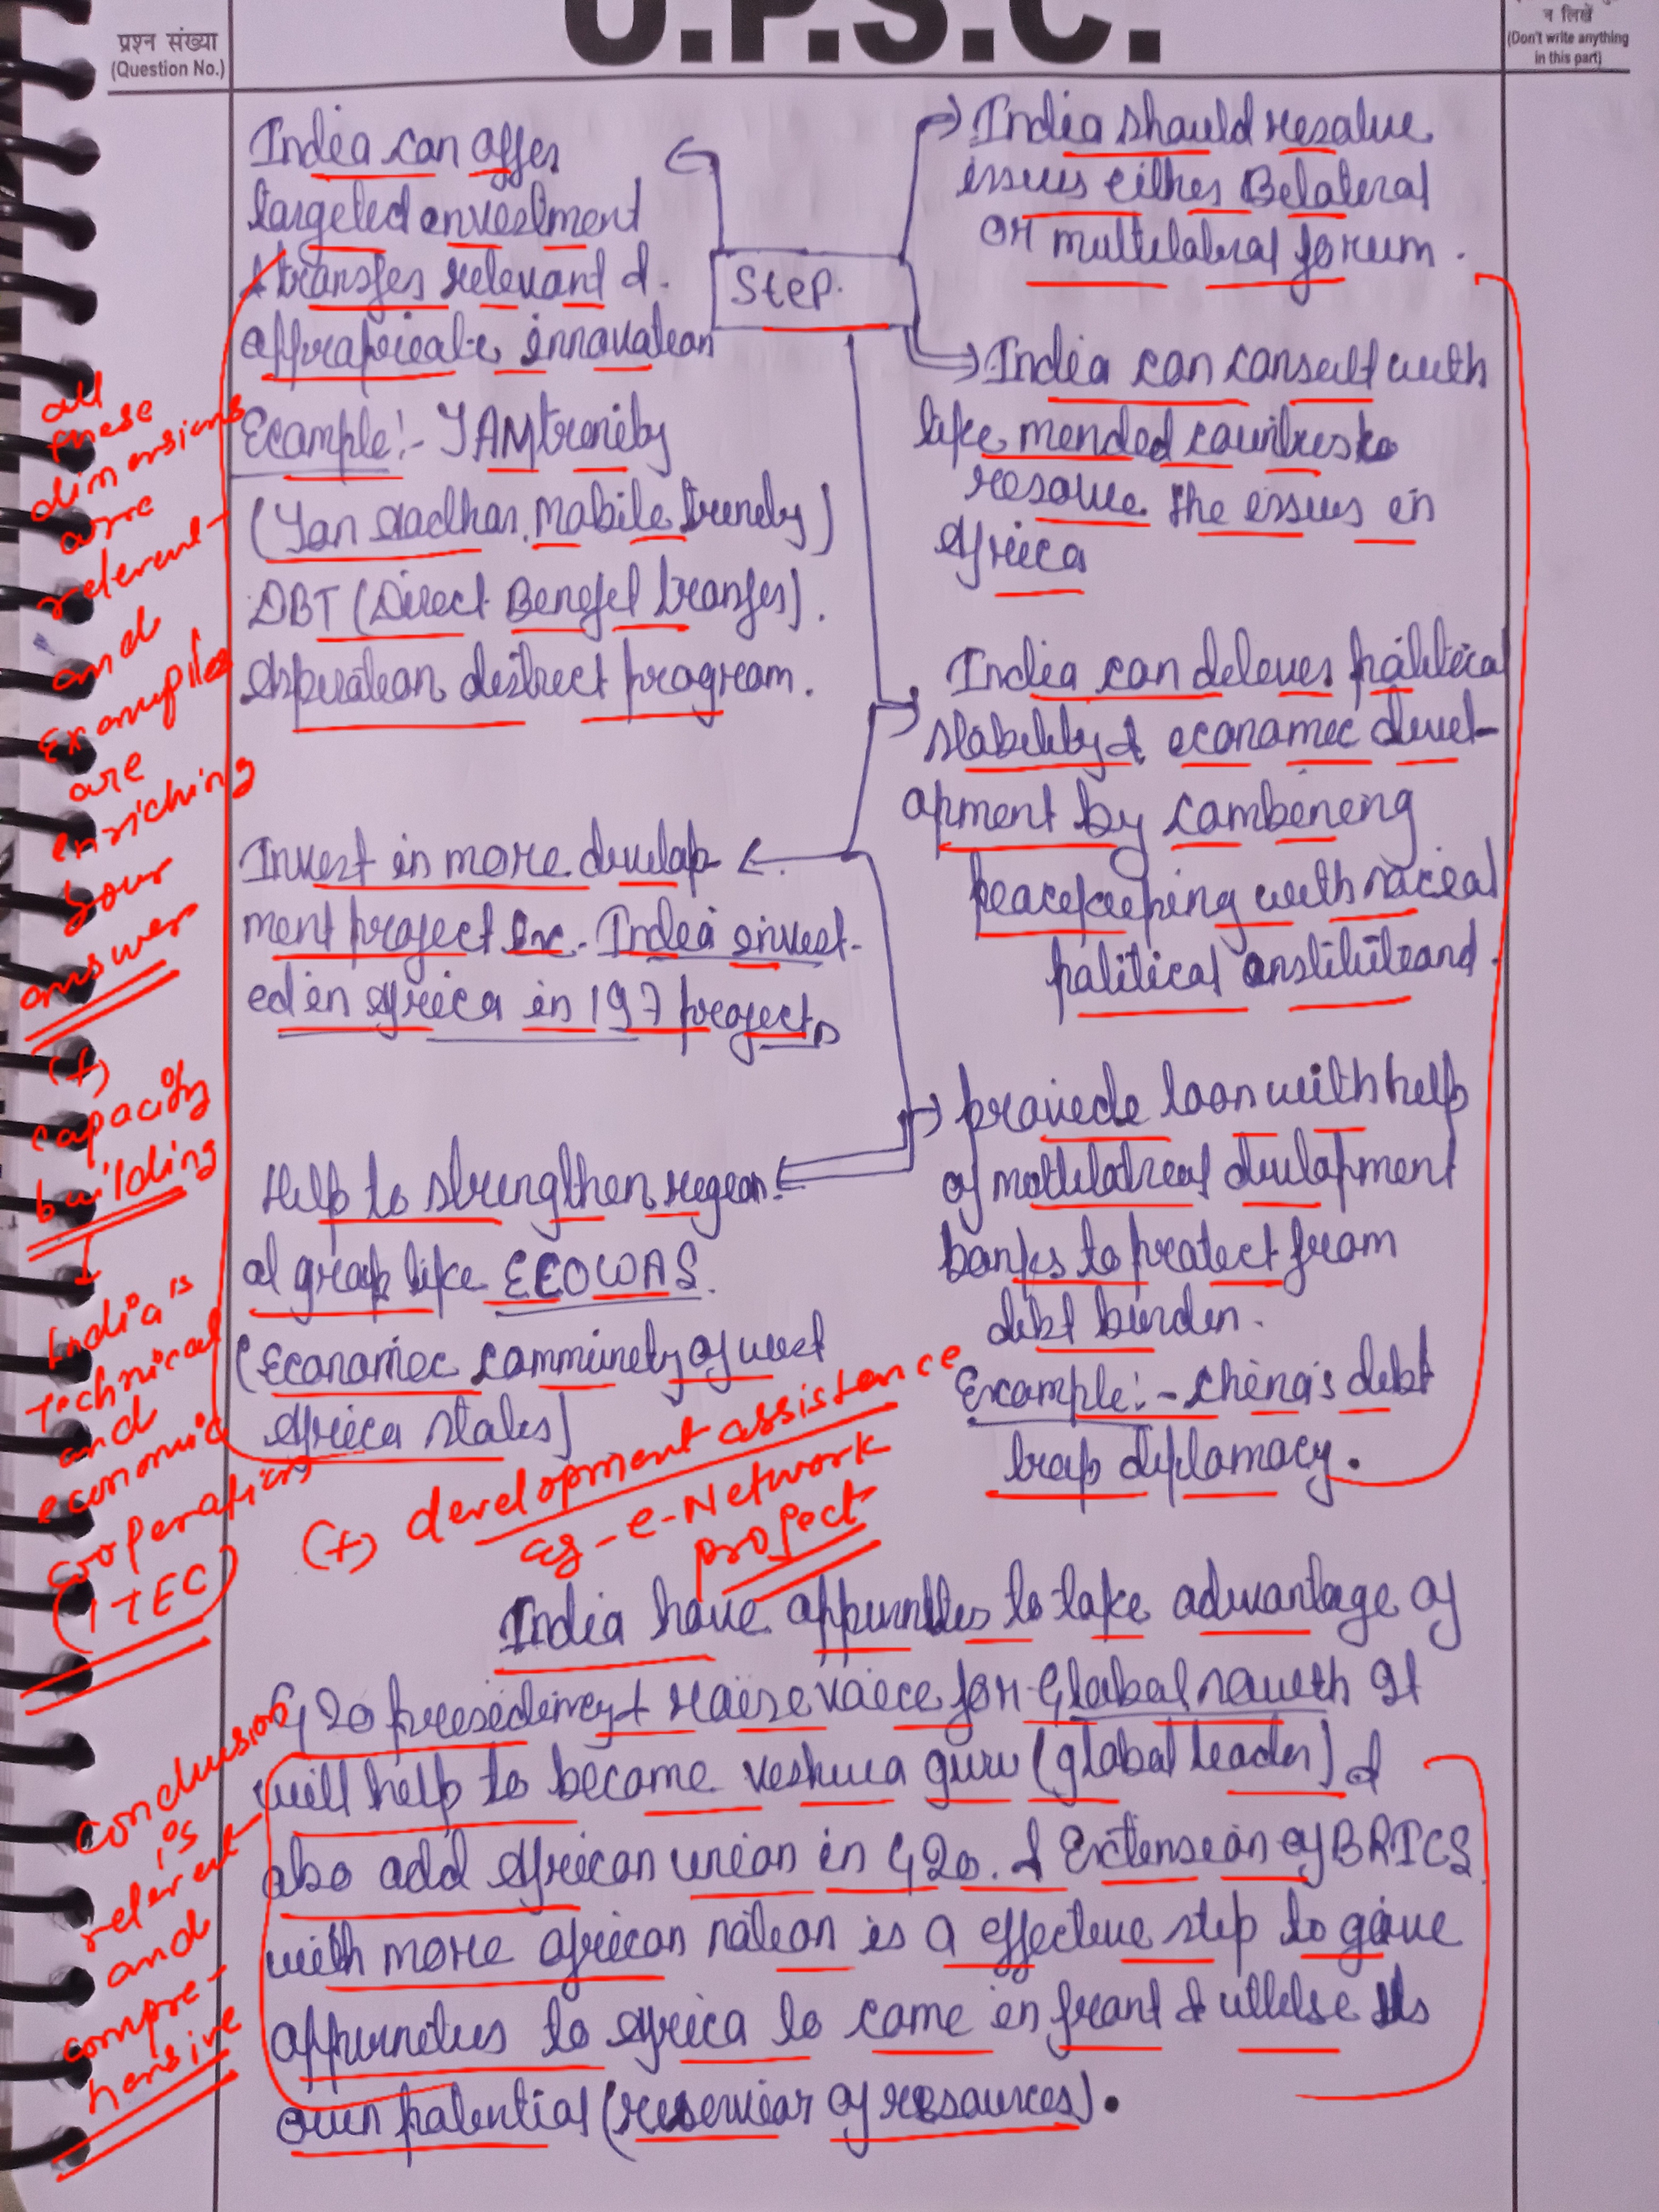 U.P.S.C.
प्रश्न संख्या
(Question No.)
न लिखें
(Don't write anything
in this part)
India can offer
targeted investment
& transfer relevant &
appropricate innovation
Example:- JAM trinity
(Jan Aadhar, Mobile trinity)
DBT (Direct Benefit transfer).
Aspiration district program.
Invest in more develop-
ment project ex. India invest-
ed in Africa in 197 projects
Help to strengthen region-
al group like ECOWAS.
(Economic community of west
Africa states)
Step.
India should resolve
issues either Bilateral
or multilateral forum.
India can consult with
like mended countries to
resolve the issues in
Africa
India can delever political
stability & economic devel-
opment by combining
peacekeeping with social
political institution and.
provide loan with help
of multilateral development
banks to protect from
debt burden.
Example:- China's debt
trap diplomacy.
all
these
dimensions
are
relevant
and
Examples
are
enriching
your
answer
(+)
capacity
building
↓
India's
Technical
and
economic
cooperation
(ITEC)
(+) development assistance
eg - e-Network
project
India have appurnities to take advantage of
G20 presidency & raise voice for Global south It
will help to become veshwa guru (global leader) &
also add African union in G20. & Extension of BRICS
with more african nation is a effective step to give
appurneties to Africa to come in front & utilise its
own potential (reservior of resources).
conclusion
is
relevant
and
compre-
hensive